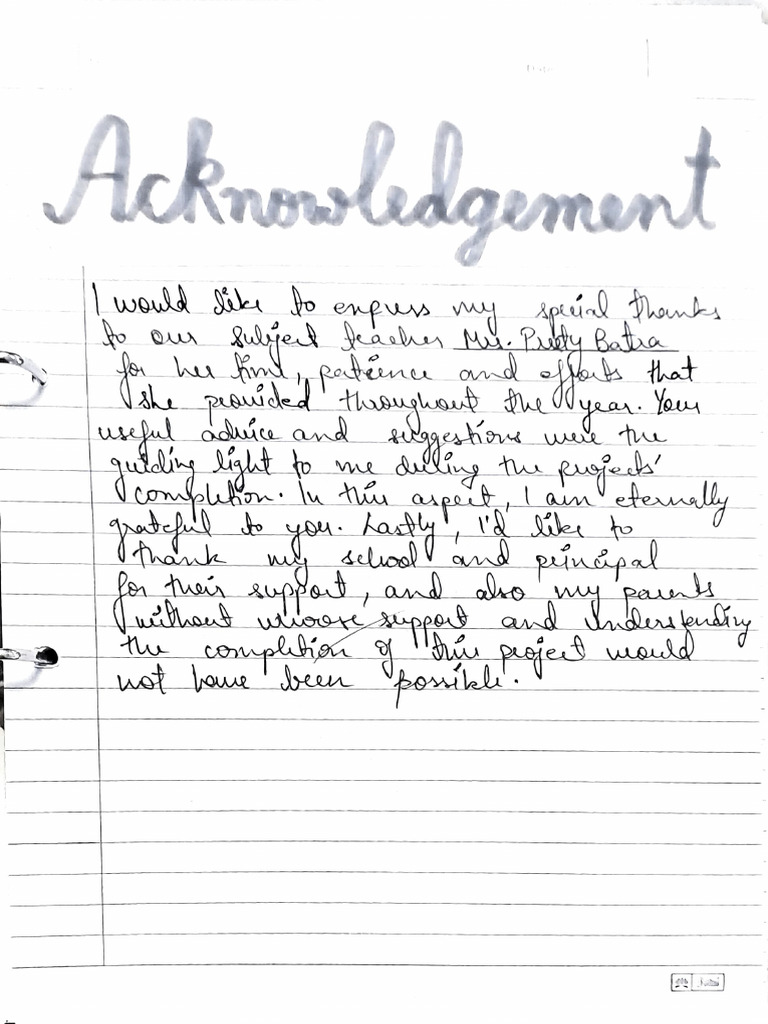 Acknowledgement
I would like to express my special thanks
to our subject teacher Mrs. Preety Batra
for her time, patience and efforts that
she provided throughout the year. Your
useful advice and suggestions were the
guiding light to me during the projects'
completion. In this aspect, I am eternally
grateful to you. Lastly, I'd like to
thank my school and principal
for their support, and also my parents
without whose support and understanding
the completion of this project would
not have been possible.